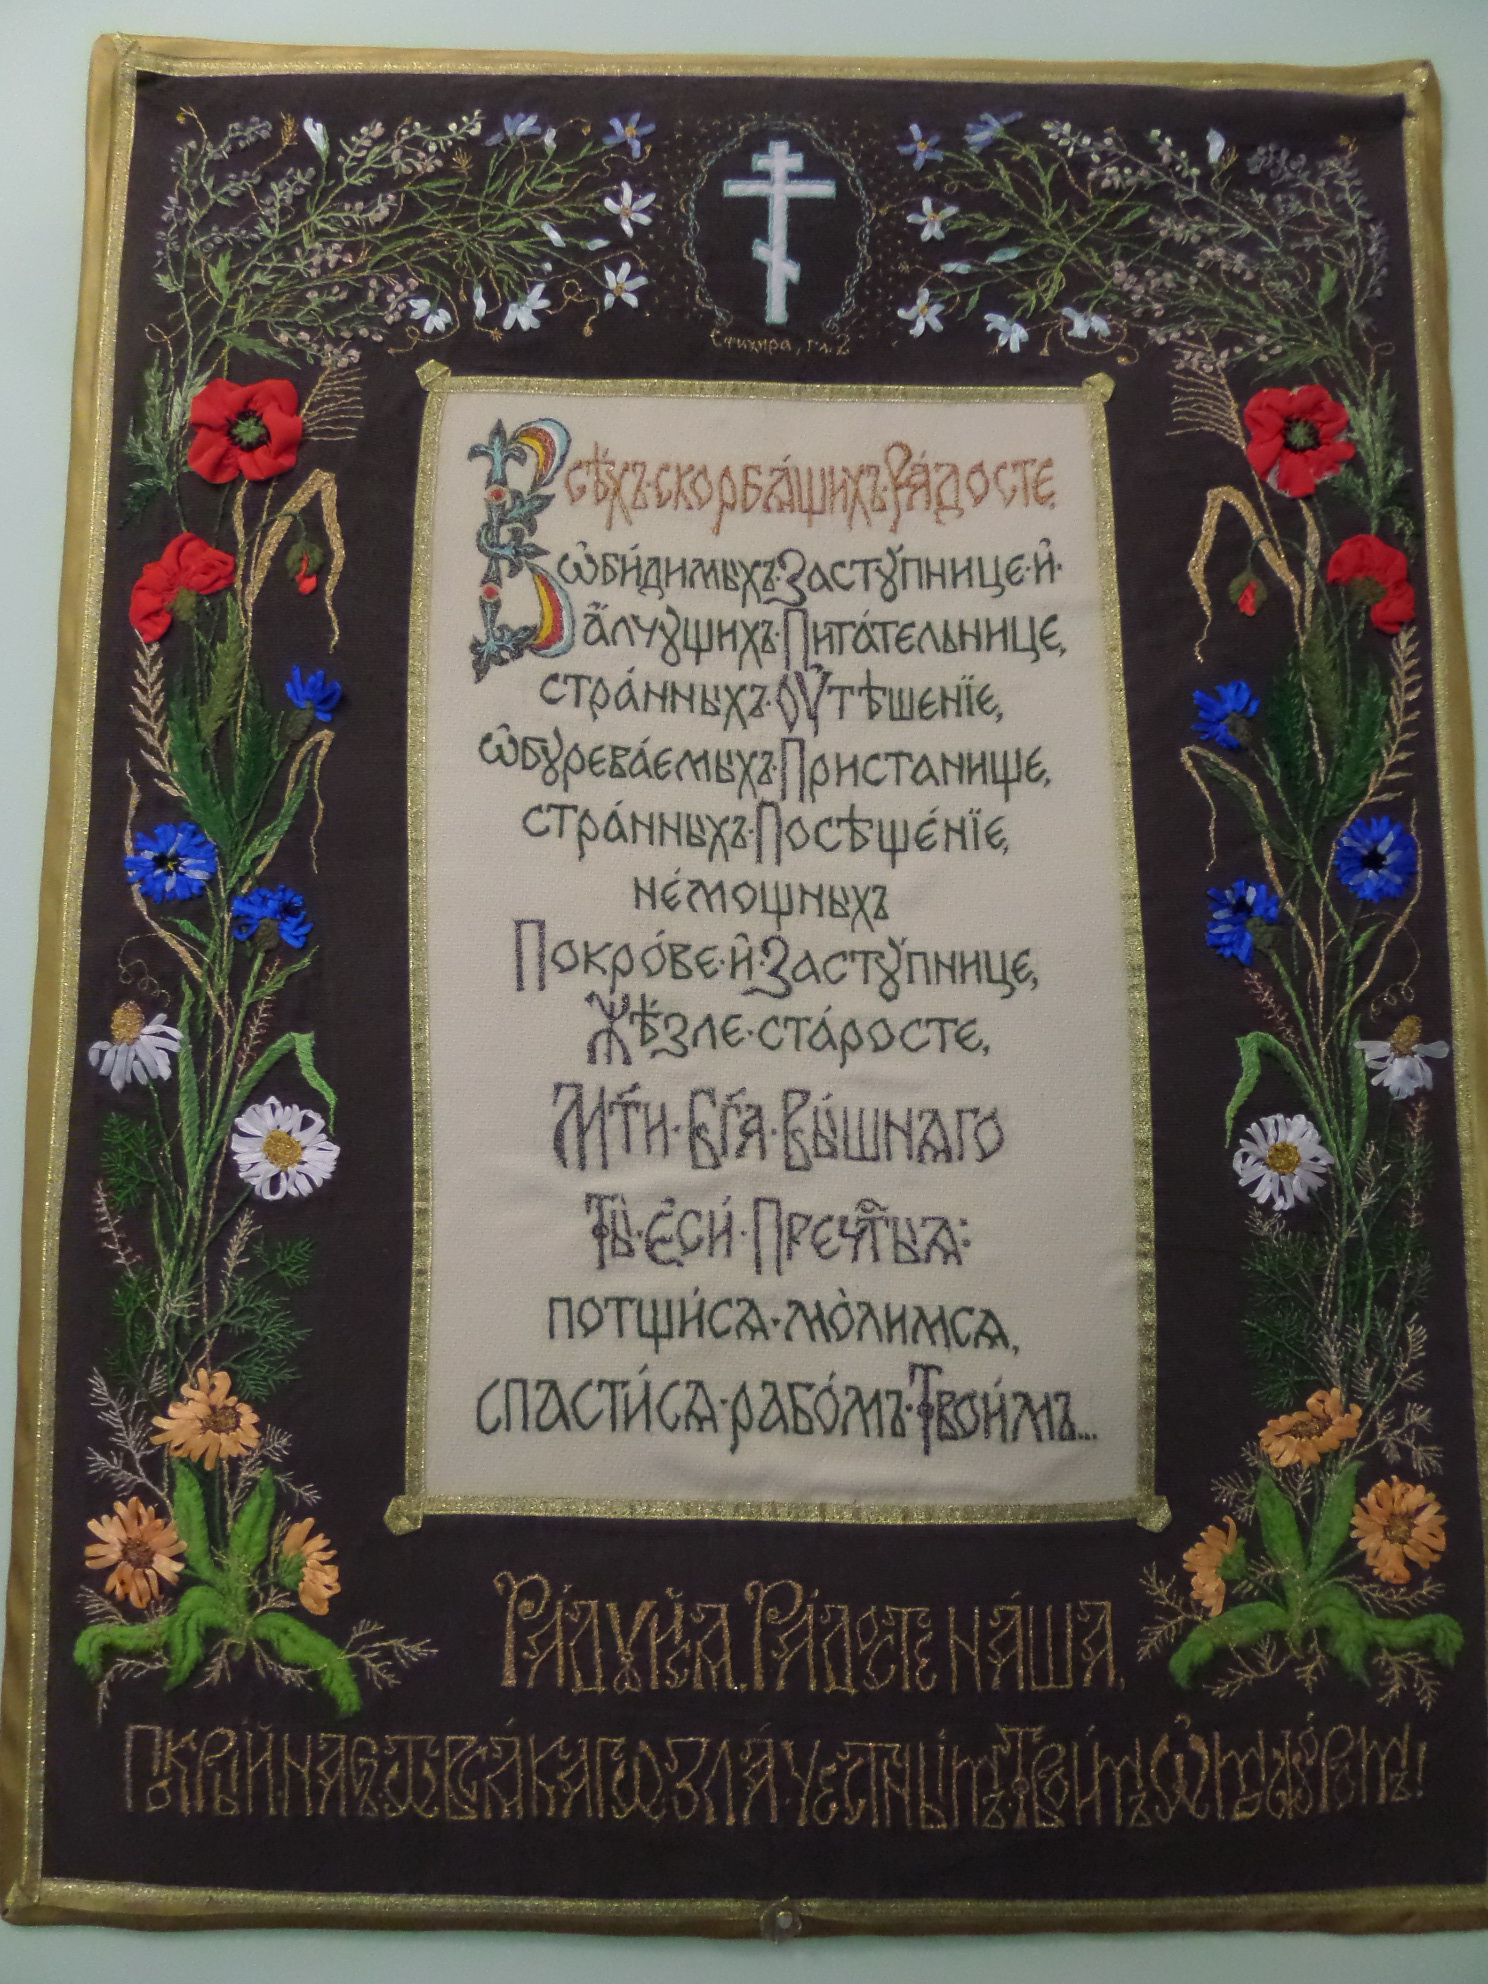 Стихира, гл. 2
Всѣ́хъ·скорбѧ́щихъ·Ра́досте,
ѡ҆би́димыхъ·Застꙋ́пнице·и҆·
а҆́лчꙋщихъ·Пита́тельнице,
стра́нныхъ·Оу҆тѣшенїе,
ѡ҆бꙋрева́емыхъ·Пристанище,
стра́нныхъ·Посѣще́нїе,
не́мощныхъ
Покро́ве·и҆·Застꙋ́пнице,
Жѣ́зле·ста́росте,
Мт҃и·Бг҃а·Вы́шнѧго
Ты̀·є҆си́·Пречⷭ҇таѧ:
потщи́сѧ·мо̀лимсѧ,
спасти́сѧ·рабо́мъ·Твои́мъ...
Ра́дꙋйсѧ, Ра́досте на́ша,
Покры́й·на́съ·ѿ·всѧ́кагѡ·зла́·честны́мъ·Твои́мъ·Ѡ҆мофо́ромъ!